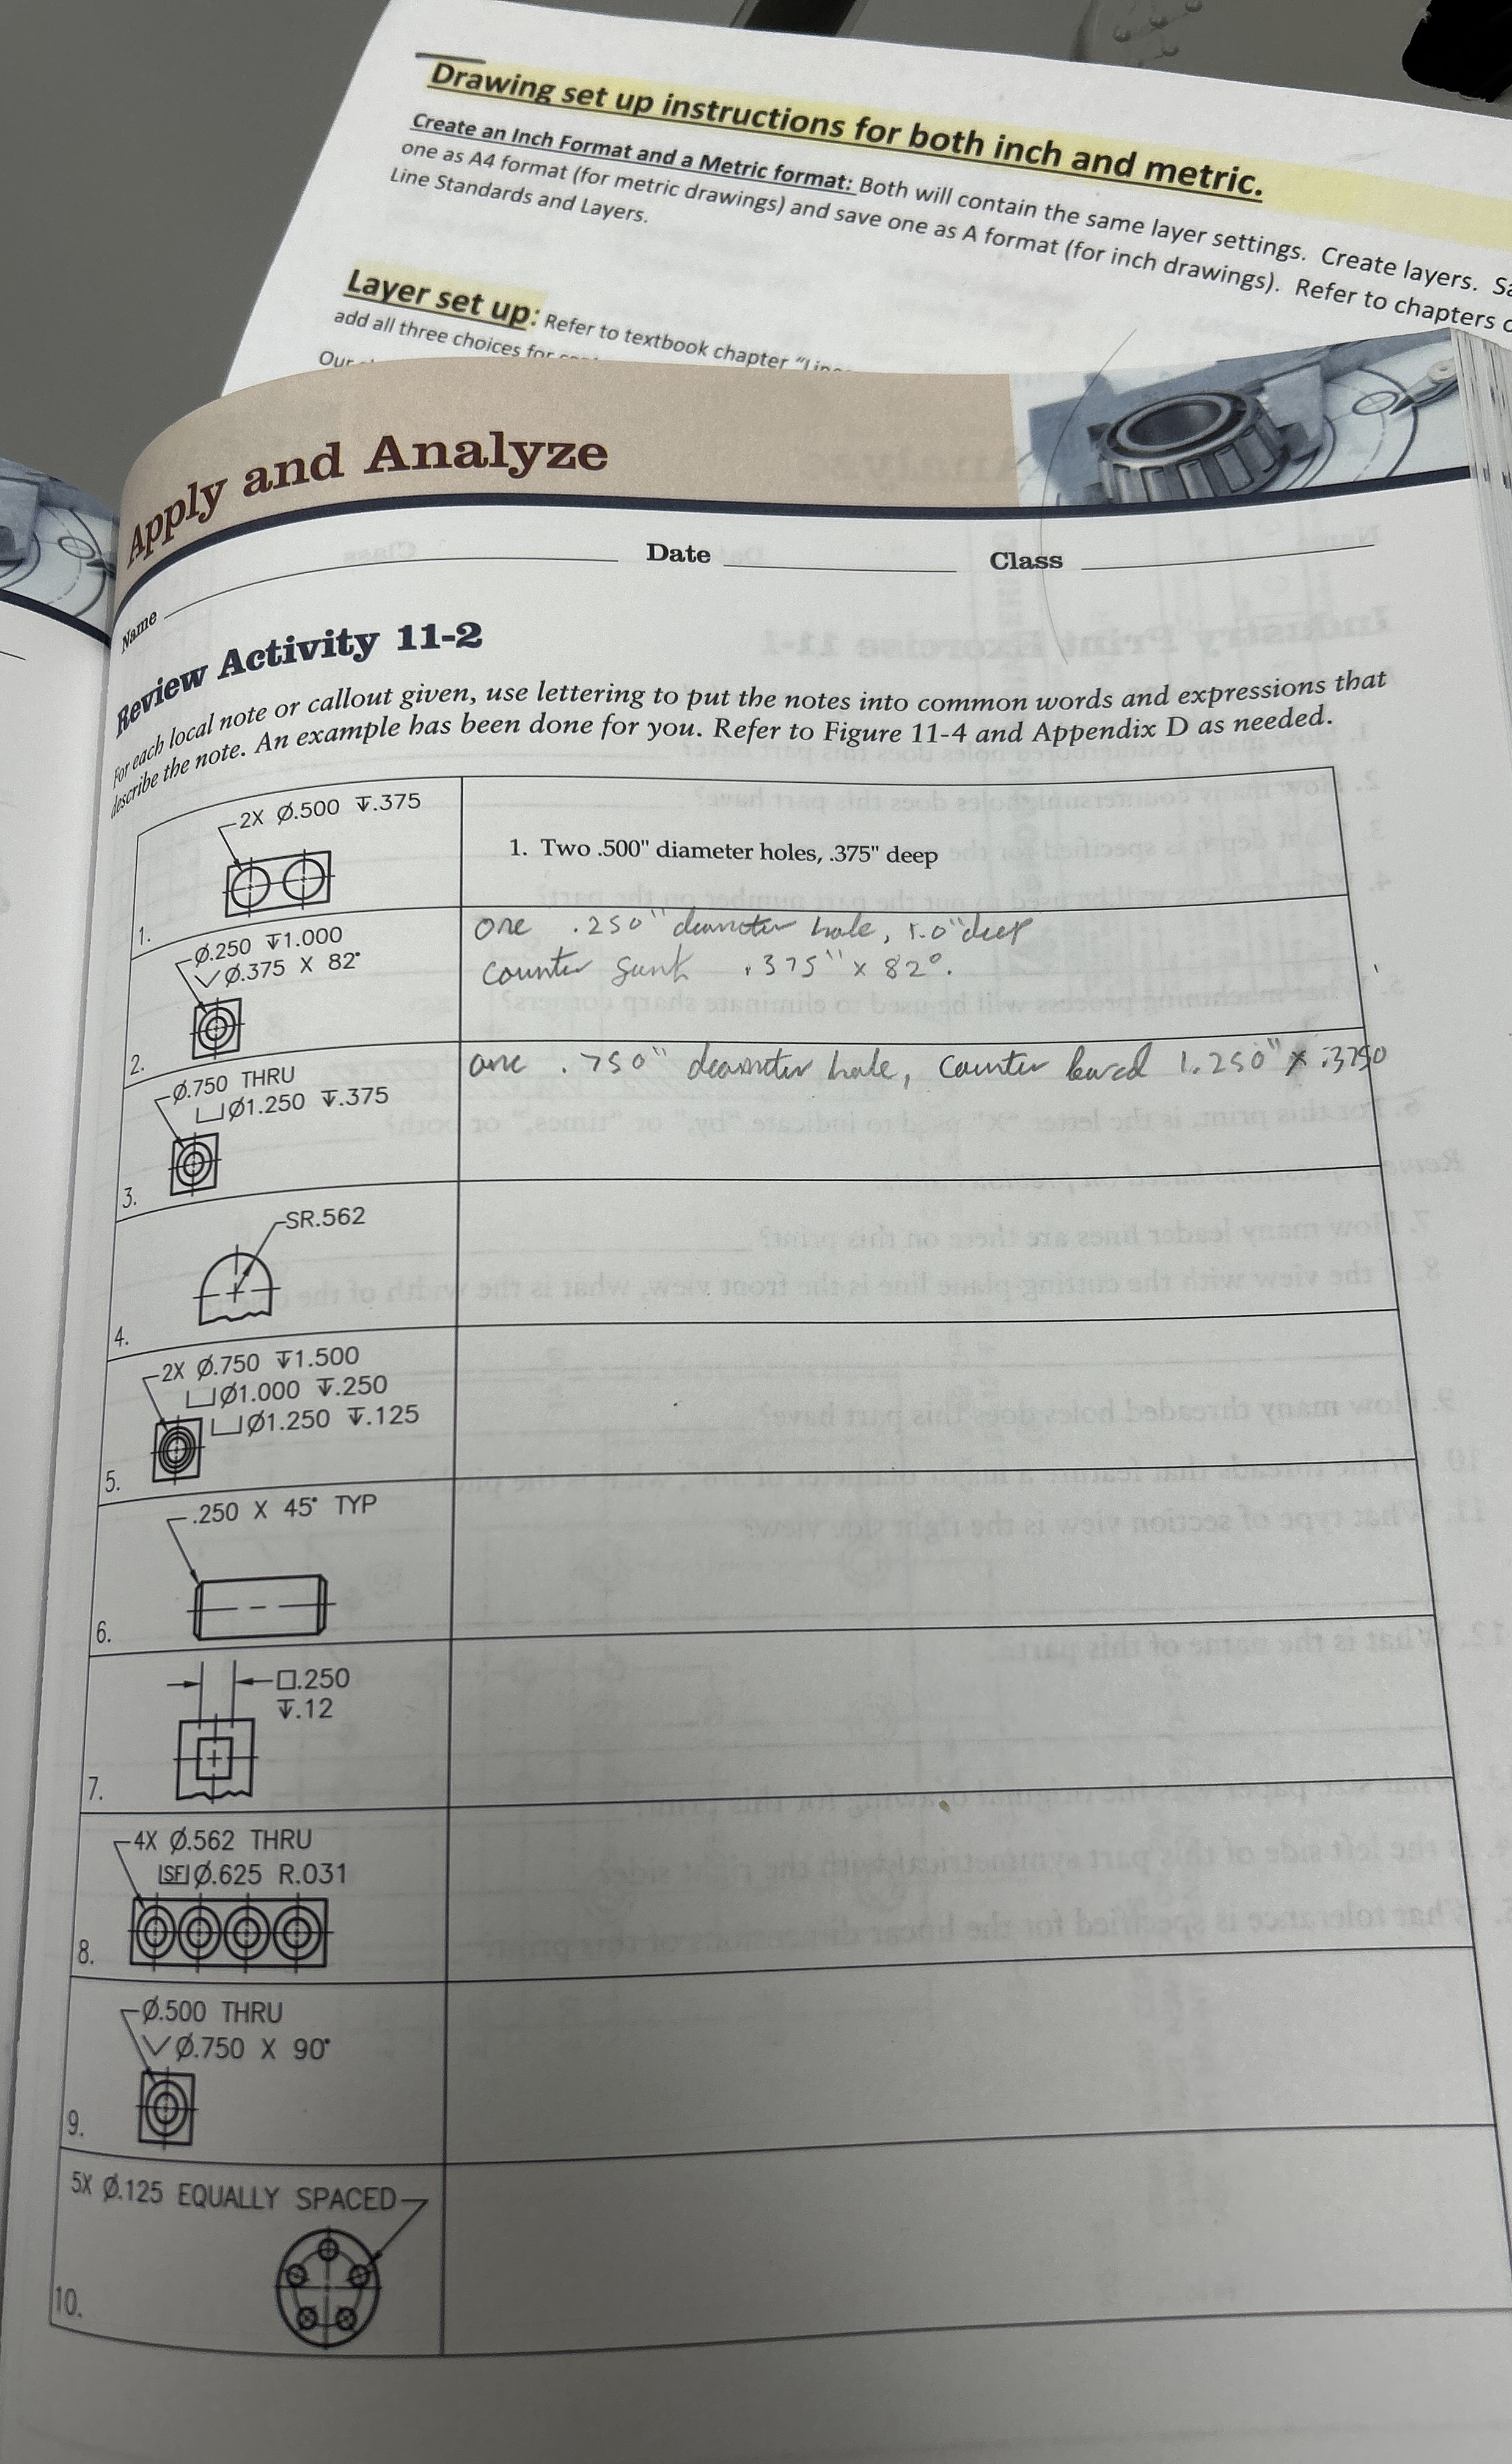 Drawing set up instructions for both inch and metric.
Create an Inch Format and a Metric format: Both will contain the same layer settings. Create layers.
one as A4 format (for metric drawings) and save one as A format (for inch drawings). Refer to chapters
Line Standards and Layers.
Layer set up: Refer to textbook chapter
add all three choices for
Our
Apply and Analyze
Name Date Class
Review Activity 11-2
For each local note or callout given, use lettering to put the notes into common words and expressions that
describe the note. An example has been done for you. Refer to Figure 11-4 and Appendix D as needed.
2X Ø.500 ↧.375
1.
1. Two .500" diameter holes, .375" deep
Ø.250 ↧1.000
⌵Ø.375 X 82°
2.
one .250" diameter hole, 1.0" deep
counter sunk .375" x 82°.
Ø.750 THRU
⌴Ø1.250 ↧.375
3.
one .750" diameter hole, counter bored 1.250" x .3750
SR.562
4.
2X Ø.750 ↧1.500
⌴Ø1.000 ↧.250
⌴Ø1.250 ↧.125
5.
.250 X 45° TYP
6.
□.250
↧.12
7.
4X Ø.562 THRU
SF Ø.625 R.031
8.
Ø.500 THRU
⌵Ø.750 X 90°
9.
5X Ø.125 EQUALLY SPACED
10.